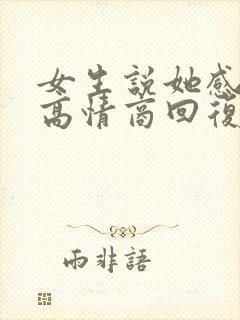 女生説她感
高情商回復
雨非語